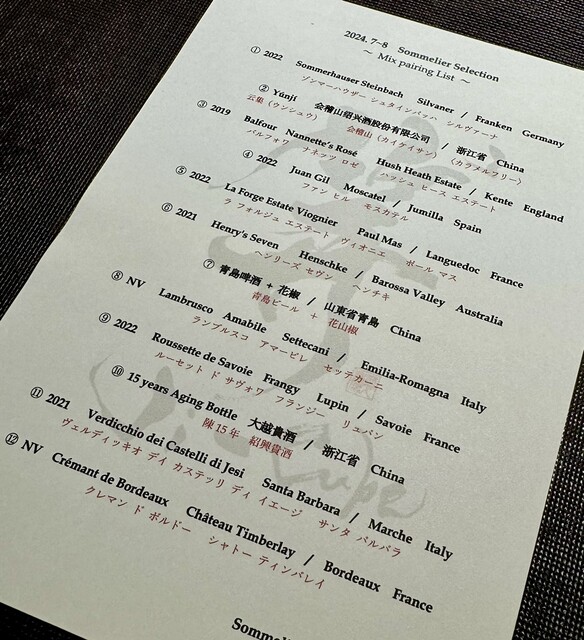 2024. 7~8 Sommelier Selection
~ Mix pairing List ~
① 2022 Sommerhauser Steinbach Silvaner / Franken Germany
ゾンマーハウザー シュタインバッハ シルヴァーナ
② Yúnjí 会稽山绍兴酒股份有限公司 / 浙江省 China
云集（ウンシュウ） 会稽山（カイケイザン） 〈カラメルフリー〉
③ 2019 Balfour Nannette's Rosé Hush Heath Estate / Kente England
バルフォワ ナネッツ ロゼ ハッシュ ヒース エステート
④ 2022 Juan Gil Moscatel / Jumilla Spain
ファン ヒル モスカテル
⑤ 2022 La Forge Estate Viognier Paul Mas / Languedoc France
ラ フォルジュ エステート ヴィオニエ ポール マス
⑥ 2021 Henry's Seven Henschke / Barossa Valley Australia
ヘンリーズ セヴン ヘンチキ
⑦ 青島啤酒 + 花椒 / 山東省青島 China
青島ビール + 花山椒
⑧ NV Lambrusco Amabile Settecani / Emilia-Romagna Italy
ランブルスコ アマービレ セッテカーニ
⑨ 2022 Roussette de Savoie Frangy Lupin / Savoie France
ルーセット ド サヴォワ フランジー リュパン
⑩ 15 years Aging Bottle 大越貴酒 / 浙江省 China
陳15年 紹興貴酒
⑪ 2021 Verdicchio dei Castelli di Jesi Santa Barbara / Marche Italy
ヴェルディッキオ デイ カステッリ ディ イエージ サンタ バルバラ
⑫ NV Crémant de Bordeaux Château Timberlay / Bordeaux France
クレマン ド ボルドー シャトー ティンバレイ